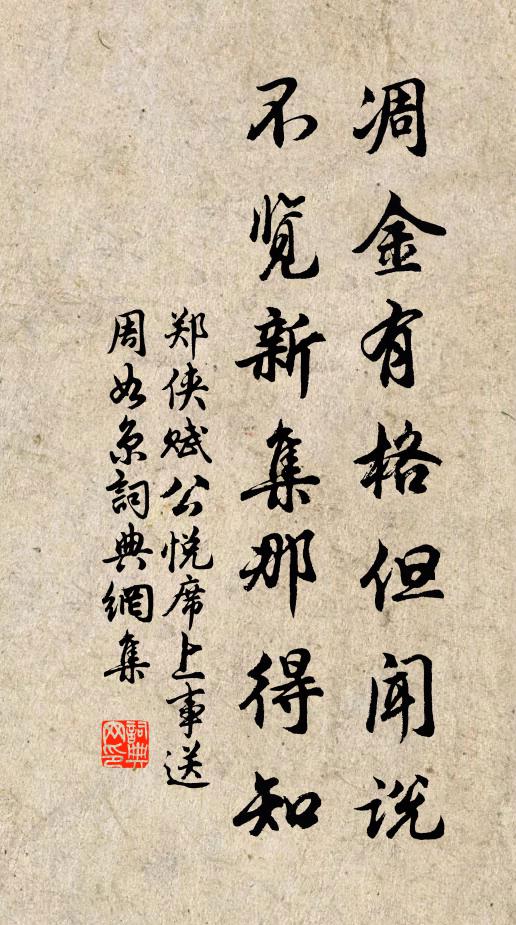 凋金有格但闻说
不览新集那得知
郑侠赋公悦席上事送
周如京詞典網集
詞典